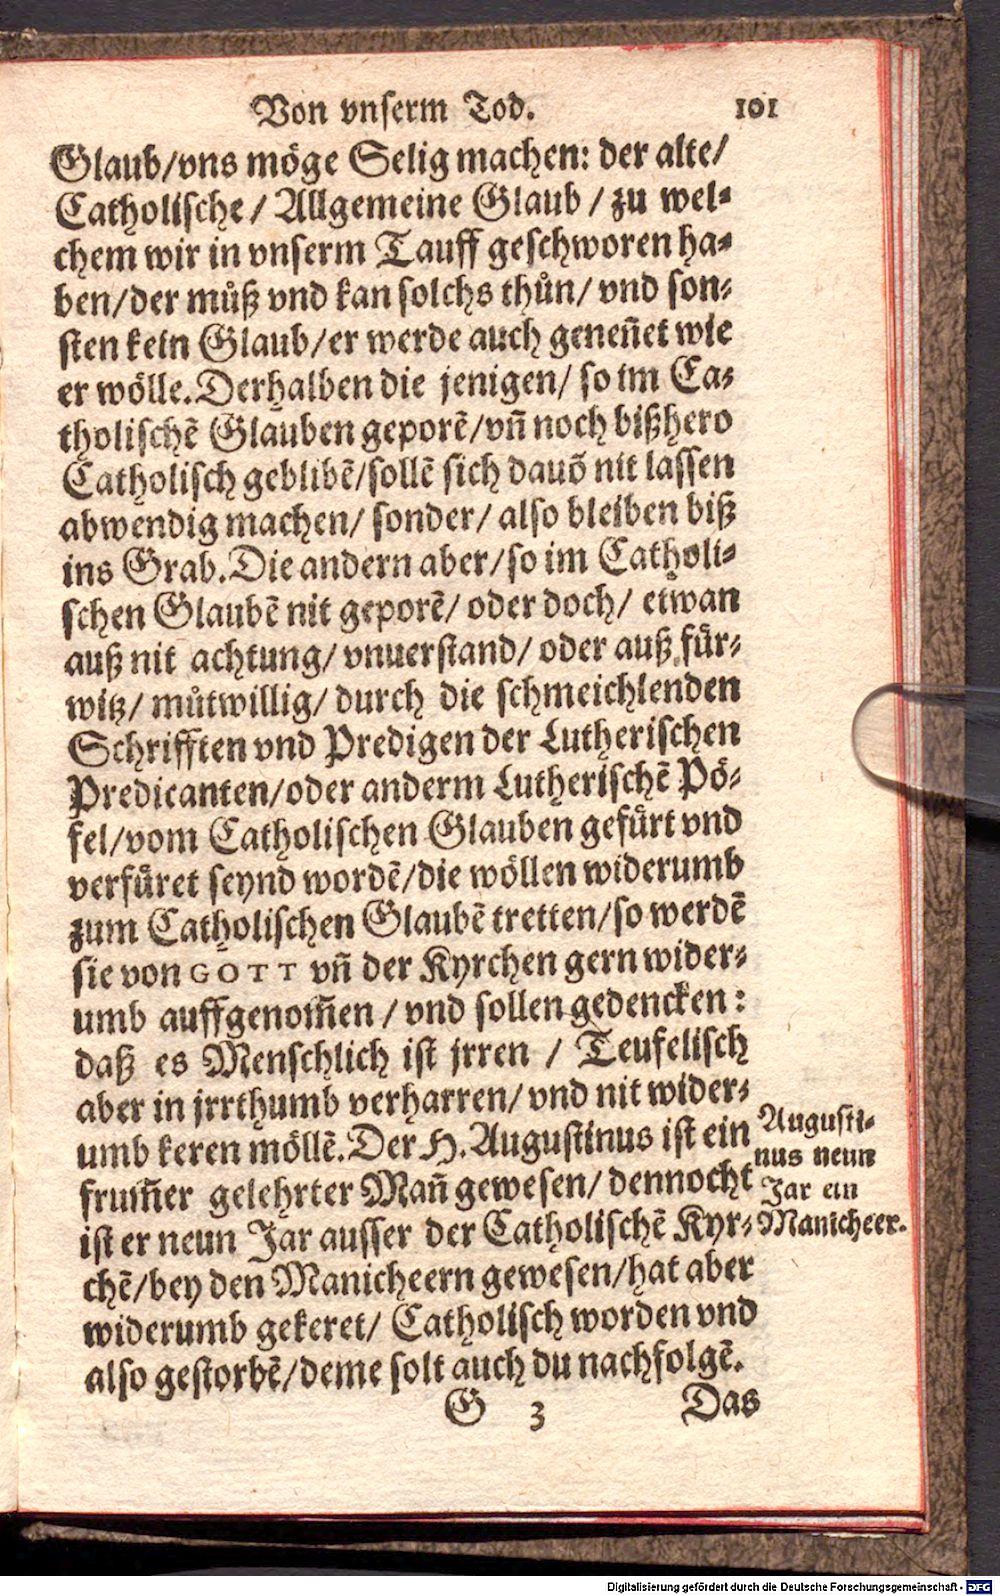 Von vnserm Tod. 101
Glaub/vns möge Selig machen: der alte/
Catholische / Allgemeine Glaub / zu wel-
chem wir in vnserm Tauff geschworen ha-
ben/der můß vnd kan solchs thůn/ vnd son-
sten kein Glaub/er werde auch geneñet wie
er wölle. Derhalben die jenigen/ so im Ca-
tholischẽ Glauben geporẽ/vñ noch bißhero
Catholisch geblibẽ/sollẽ sich dauõ nit lassen
abwendig machen/ sonder/ also bleiben biß
ins Grab. Die andern aber/so im Catholi-
schen Glaubẽ nit geporẽ/ oder doch/ etwan
auß nit achtung/ vnuerstand/ oder auß für-
witz/ můtwillig/ durch die schmeichlenden
Schrifften vnd Predigen der Lutherischen
Predicanten/oder anderm Lutherischẽ Pö-
fel/vom Catholischen Glauben gefürt vnd
verfüret seynd wordẽ/die wöllen widerumb
zum Catholischen Glaubẽ tretten/so werdẽ
sie von GOTT vñ der Kyrchen gern wider-
umb auffgenom̃en / vnd sollen gedencken:
daß es Menschlich ist jrren / Teufelisch
aber in jrrthumb verharren/ vnd nit wider-
umb keren möllẽ. Der H. Augustinus ist ein
frum̃er gelehrter Mañ gewesen/ dennocht
ist er neun Jar ausser der Catholischẽ Kyr-
chẽ/bey den Manicheern gewesen/hat aber
widerumb gekeret/ Catholisch worden vnd
also gestorbẽ/deme solt auch du nachfolgẽ.
Augusti-
nus neun
Jar ein
Manicheer.
G 3 Das
Digitalisierung gefördert durch die Deutsche Forschungsgemeinschaft - DFG